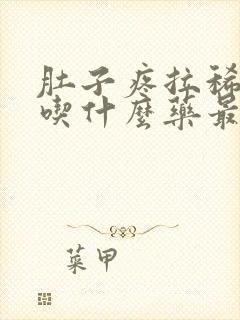 肚子疼拉稀
喫什麼藥最
菜甲